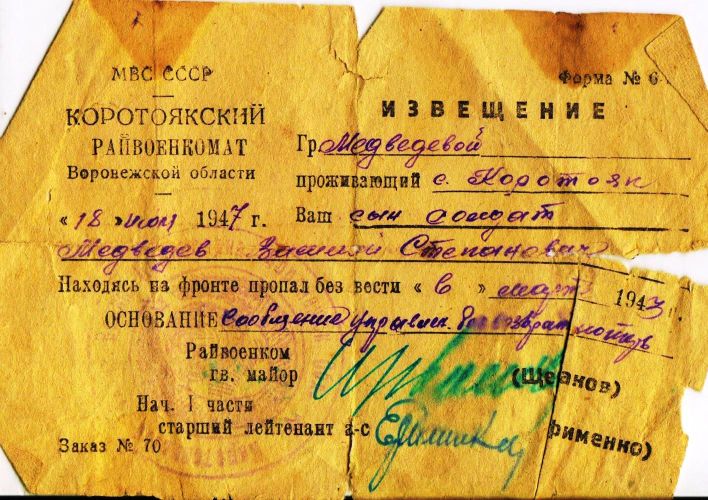 МВС СССР
КОРОТОЯКСКИЙ
РАЙВОЕНКОМАТ
Воронежской области
« 18 » 1947 г.
Форма № 6-
ИЗВЕЩЕНИЕ
Гр. Медведевой
проживающий с. Коротояк
Ваш сын солдат
Медведев Степанович
Находясь на фронте пропал без вести « в » март 1943 г.
ОСНОВАНИЕ Сообщение
Райвоенком
гв. майор
Нач. I части
старший лейтенант а-с
фименко)
Заказ № 70